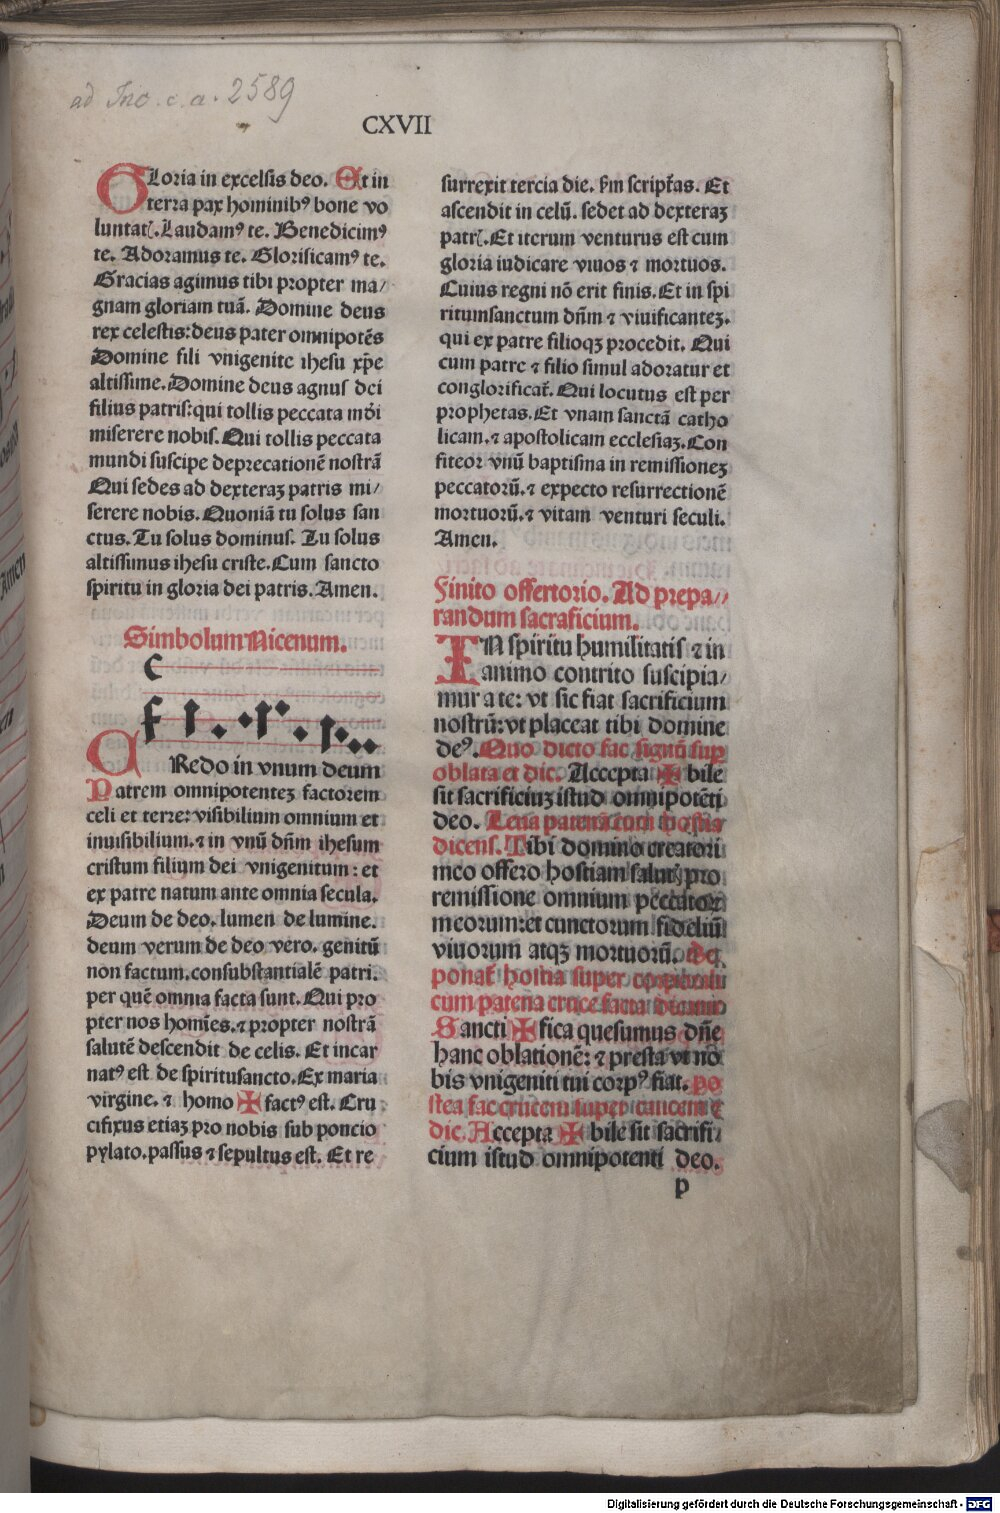 ad Inc. c. a. 2589
CXVII
GLoria in excelsis deo. Et in
terra pax hominibꝰ bone vo
luntatꝭ. Laudamꝰ te. Benedicimꝰ
te. Adoramus te. Glorificamꝰ te.
Gracias agimus tibi propter ma/
gnam gloriam tuā. Domine deus
rex celestis: deus pater omnipotēs
Domine fili vnigenite ihesu xp̄e
altissime. Domine deus agnus dei
filius patris: qui tollis peccata mūdi
miserere nobis. Qui tollis peccata
mundi suscipe deprecationē nostrā
Qui sedes ad dexteraꝫ patris mi/
serere nobis. Quoniā tu solus san
ctus. Tu solus dominus. Tu solus
altissimus ihesu criste. Cum sancto
spiritu in gloria dei patris. Amen.
Simbolum Nicenum.
CRedo in vnum deum
Patrem omnipotenteꝫ factorem
celi et terre: visibilium omnium et
inuisibilium. ⁊ in vnū dn̄m ihesum
cristum filium dei vnigenitum: et
ex patre natum ante omnia secula.
Deum de deo. lumen de lumine.
deum verum de deo vero. genitū
non factum. consubstantialē patri.
per quē omnia facta sunt. Qui pro
pter nos homīes. ⁊ propter nostrā
salutē descendit de celis. Et incar
natꝰ est de spiritusancto. Ex maria
virgine. ⁊ homo ✠ factꝰ est. Cru
cifixus etiaꝫ pro nobis sub poncio
pylato. passus ⁊ sepultus est. Et re
surrexit tercia die. s̄m script̄as. Et
ascendit in celū. sedet ad dexteraꝫ
patrꝭ. Et iterum venturus est cum
gloria iudicare viuos ⁊ mortuos.
Cuius regni nō erit finis. Et in spi
ritumsanctum dn̄m ⁊ viuificanteꝫ.
qui ex patre filioqꝫ procedit. Qui
cum patre ⁊ filio simul adoratur et
conglorificat̄. Qui locutus est per
prophetas. Et vnam sanctā catho
licam. ⁊ apostolicam ecclesiaꝫ. Con
fiteor vnū baptisma in remissioneꝫ
peccatorū. ⁊ expecto resurrectionē
mortuorū. ⁊ vitam venturi seculi.
Amen.
Finito offertorio. Ad prepa//
randum sacraficium.
IN spiritu humilitatis ⁊ in
animo contrito suscipia/
mur a te: vt sic fiat sacrificium
nostrū: vt placeat tibi domine
deꝰ. Quo dicto fac signū sup̄
oblata et dic. Accepta ✠ bile
sit sacrificiuꝫ istud omnipotēti
deo. Lena patenā cum hostia
dicens. Tibi domino creatori
meo offero hostiam salutꝭ pro
remissione omnium peccator̄
meorum: et cunctorum fideliū
viuorum atqꝫ mortuorū. De
ponat̄ hostia super corporali
cum patena cruce facta dicendo
Sancti ✠ fica quesumus dn̄e
hanc oblationē: ⁊ presta vt no
bis vnigeniti tui corpꝰ fiat. Po
stea fac crucem super caucem ⁊
dic. Accepta ✠ bile sit sacrifi/
cium istud omnipotenti deo.
p
Digitalisierung gefördert durch die Deutsche Forschungsgemeinschaft - DFG